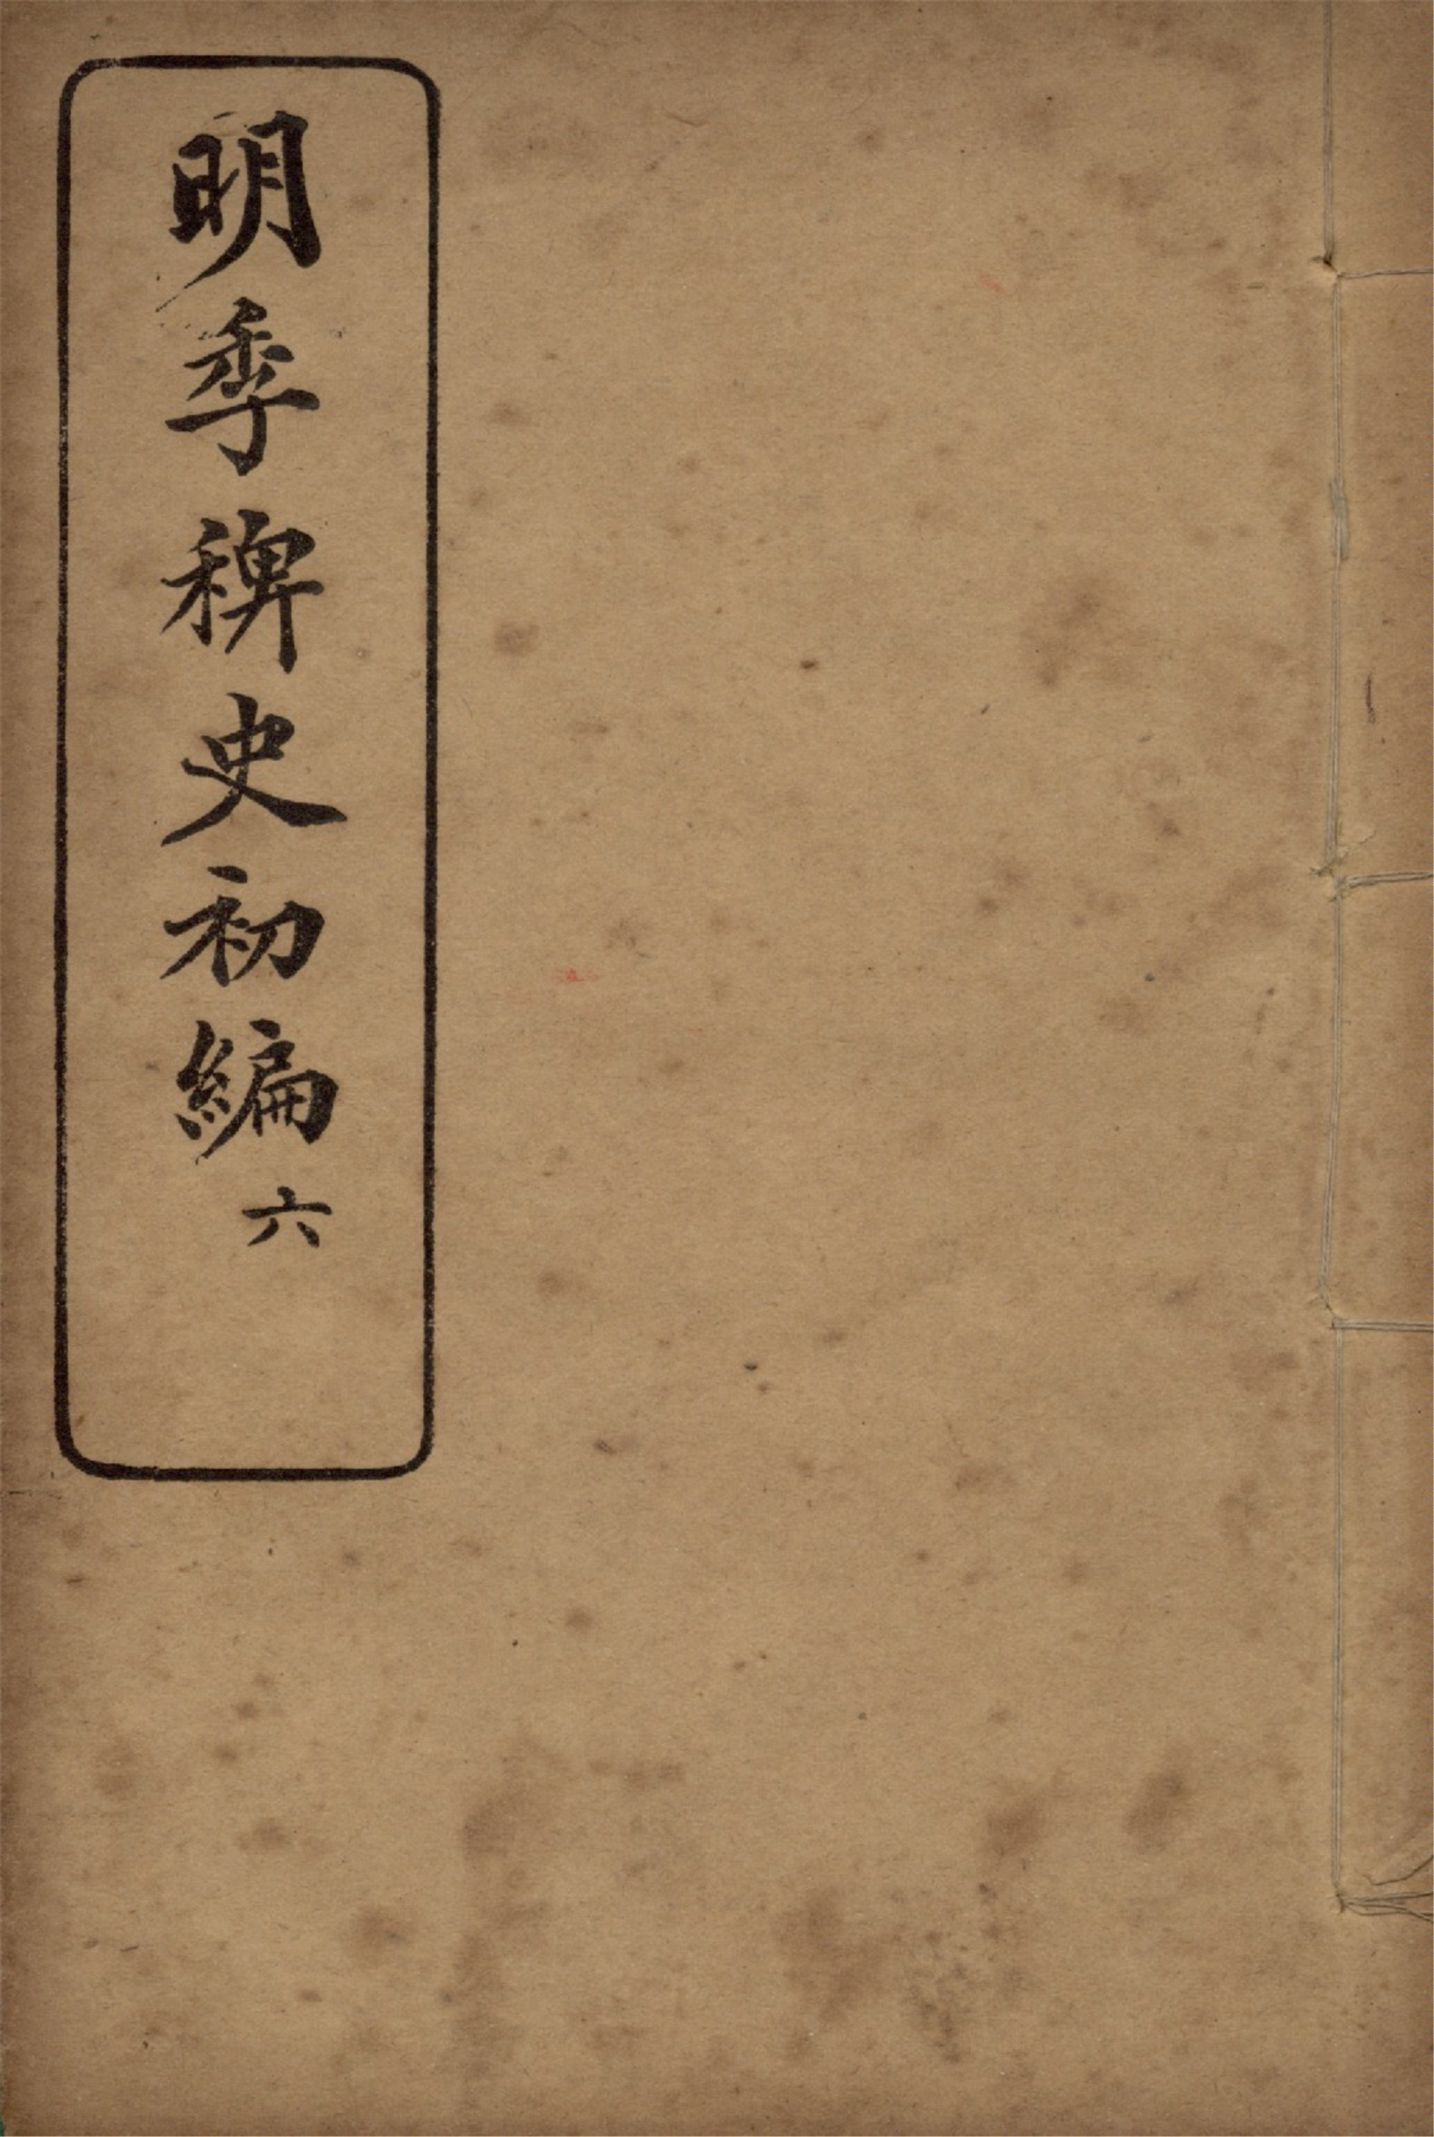 明季稗史初編六